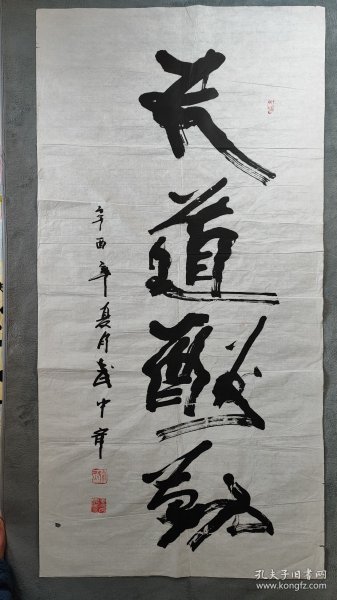 天道酬勤
辛酉年夏月武中奇
孔夫子旧书网
www.kongfz.com